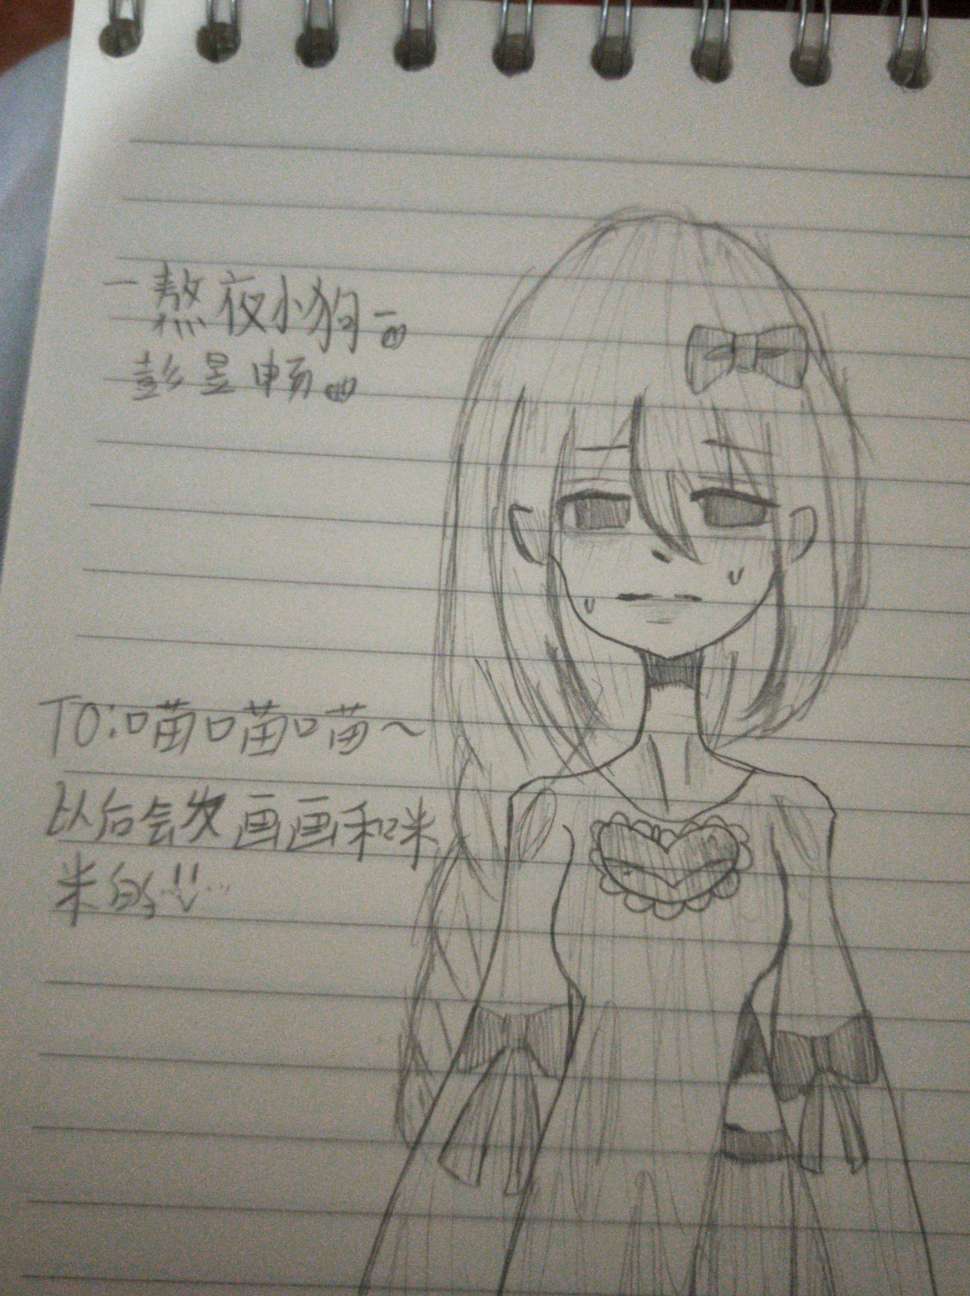 一熬夜小狗一
彭昱畅
TO:喵喵喵~
以后会发画画和咪
米的!!…